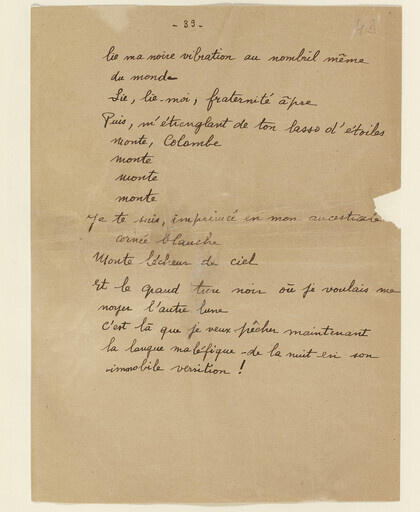 - 39 -
lie ma noire vibration au nombril même
du monde
Lie, lie-moi, fraternité âpre
Puis, m'étranglant de ton lasso d'étoiles
monte, Colombe
monte
monte
monte
Je te suis, imprimée en mon ancestrale
cornée blanche
Monte lécheur de ciel
Et le grand trou noir où je voulais me
noyer l'autre lune
c'est là que je veux pêcher maintenant
la langue maléfique de la nuit en son
immobile verrition !